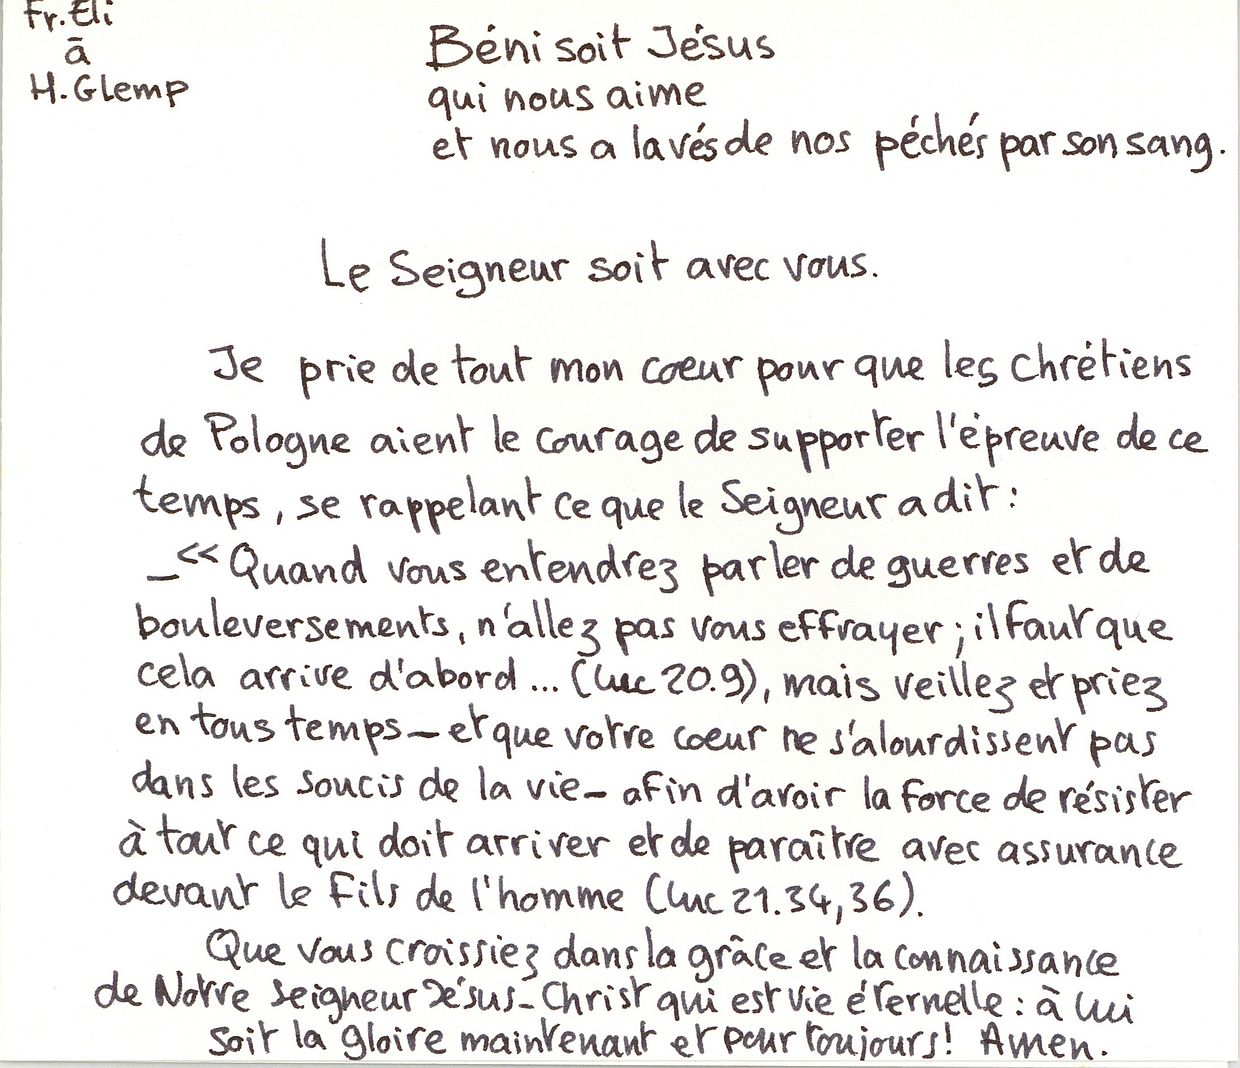 Fr. Eli
à
H. Glemp
Béni soit Jésus
qui nous aime
et nous a lavés de nos péchés par son sang.
Le Seigneur soit avec vous.
Je prie de tout mon coeur pour que les chrétiens
de Pologne aient le courage de supporter l'épreuve de ce
temps, se rappelant ce que le Seigneur a dit :
_<< Quand vous entendrez parler de guerres et de
bouleversements, n'allez pas vous effrayer ; il faut que
cela arrive d'abord ... (Luc 20.9), mais veillez et priez
en tous temps _ et que votre coeur ne s'alourdissent pas
dans les soucis de la vie _ afin d'avoir la force de résister
à tout ce qui doit arriver et de paraître avec assurance
devant le Fils de l'homme (Luc 21.34,36).
Que vous croissiez dans la grâce et la connaissance
de Notre Seigneur Jésus-Christ qui est vie éternelle : à Lui
soit la gloire maintenant et pour toujours! Amen.